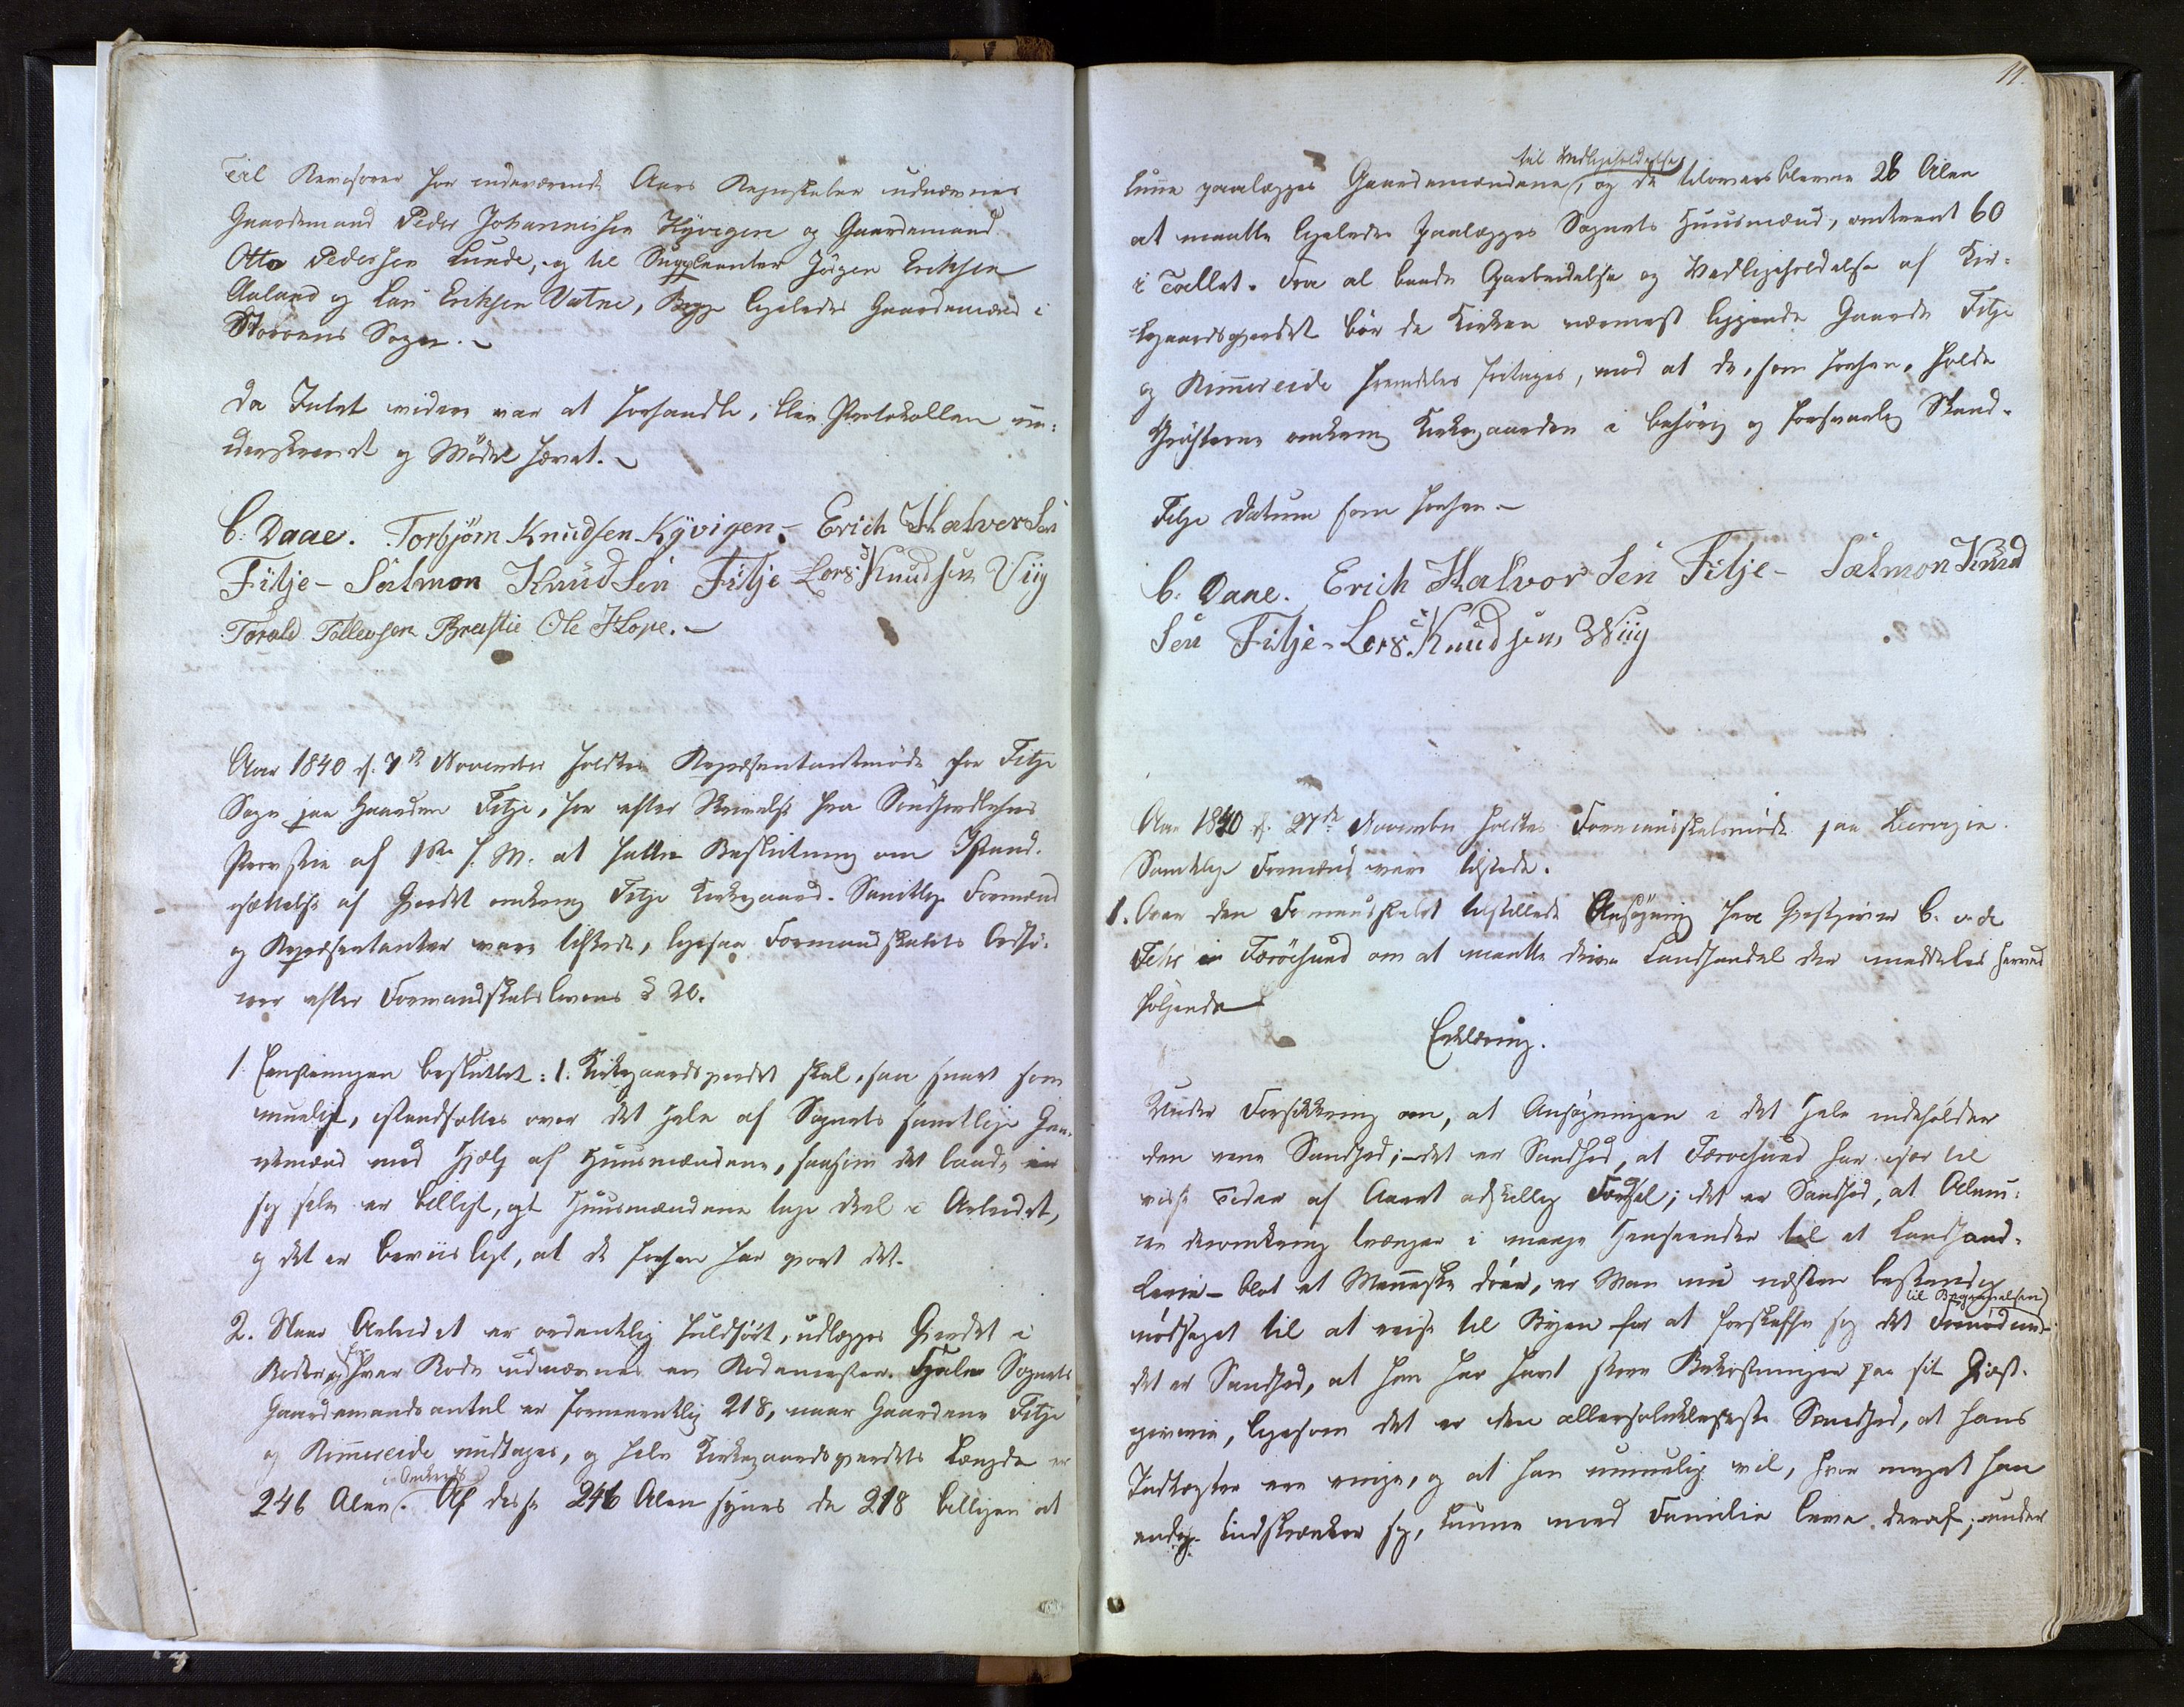 Til Revisorer for indeværende Aars Regnskaber udnævnes
Gaardemand Peder Johannesen Kyvigen og Gaardemand
Otto Pedersen Lunde, og til Suppleanter Jørgen Eriksen
Aaland og Lars Eriksen Vatne, Begge ligeledes Gaardemænd i
Storøens Sogn. -
Da Intet videre var at forhandle, blev Protokollen un-
derskrevet og Mødet hævet. -
C. Daae. Torbjörn Knudsen Kÿvigen - Erich Halversen
Fitje - Salmon Knudsen Fitje Lars Knudsen Viig
Torald Tollevsen Ole Hope. -
Aar 1840 d. 7de November holdtes Repræsentantmøde for Fitje
Sogn paa Gaarden Fitje, for efter Skrivelse fra Søndhordlehns
Provstie af 1ste f. M. at fatte Beslutning om Istand-
sættelse af Gjerdet omkring Fitje Kirkegaard. Samtlige Formænd
og Repræsentanter vare tilstede, ligesaa Formandskabets Ordfø-
rer efter Formandskabslovens § 20.
1. Eenstemmigen besluttet: 1. Kirkegaardsgjerdet skal, saa snart som
mueligt, istandsættes over det Hele af Sognets samtlige Gaar-
demænd med Hjælp af Huusmændene, saasom det baade i
sig selv er billigt, at Huusmændene tage deel i Arbeidet,
og det er beviisligt, at de forhen har gjort det.
2. Naar Arbeidet er ordentlig fuldført, udlægges Gjerdet i
Roder, og for hver Rode udnævnes en Rodemester. Hele Sognets
Gaardemandsantal er formeentlig 218, naar Gaardene Fitje
og Rimmereide undtages, og hele Kirkegaardsgjerdets Længde er
246 Alen i Omkreds. Af disse 246 Alen synes de 218 billigen at
11.
kunne paalægges Gaardemændene til Vedligeholdelse, og de tiloversblevne 28 Alen
at maatte ligeledes paalægges Sognets Huusmænd, omtrent 60
i Tallet. Fra al baade Oparbeidelse og Vedligeholdelse af Kir-
kegaardsgjerdet bør de Kirken nærmest liggende Gaarde Fitje
og Rimmereide fremdeles fritages, mod at de, som forhen, holde
Grøfterne omkring Kirkegaarden i behørig og forsvarlig Stand.
Fitje Datum som forhen -
C. Daae. Erich Halvorsen Fitje - Salmon Knud
sen Fitje - Lars Knudsen Wiig
Aar 1840 d. 27de November holdtes Formandskabsmøde paa Leervigen.
Samtlige Formænd vare tilstede.
1. Over den Formandskabet tilstillede Ansøgning fra Gjæstgiver C. v. d.
Fehr i Førøesund om at maatte drive Landhandel der meddeles herved
følgende
Erklæring.
Under Forsikkring om, at Ansøgningen i det Hele indeholder
den rene Sandhed; - det er Sandhed, at Førøesund har især til
visse Tider af Aaret adskillig Færdsel; det er Sandhed, at Almu-
en deromkring trænger i mange Henseender til et Landhand-
lerie - blot et Menneske døer, er Man nu næsten bestandig
nødsaget til at reise til Byen for at forskaffe sig det til Begravelsen Fornødne -
det er Sandhed, at han har havt store Bekostninger paa sit Gjæst-
giverie, ligesom det er den allersoleklareste Sandhed, at hans
Indtægter ere ringe, og at han umuelig vil, hvor meget han
endog indskrænker sig, kunne med Familie leve deraf; under